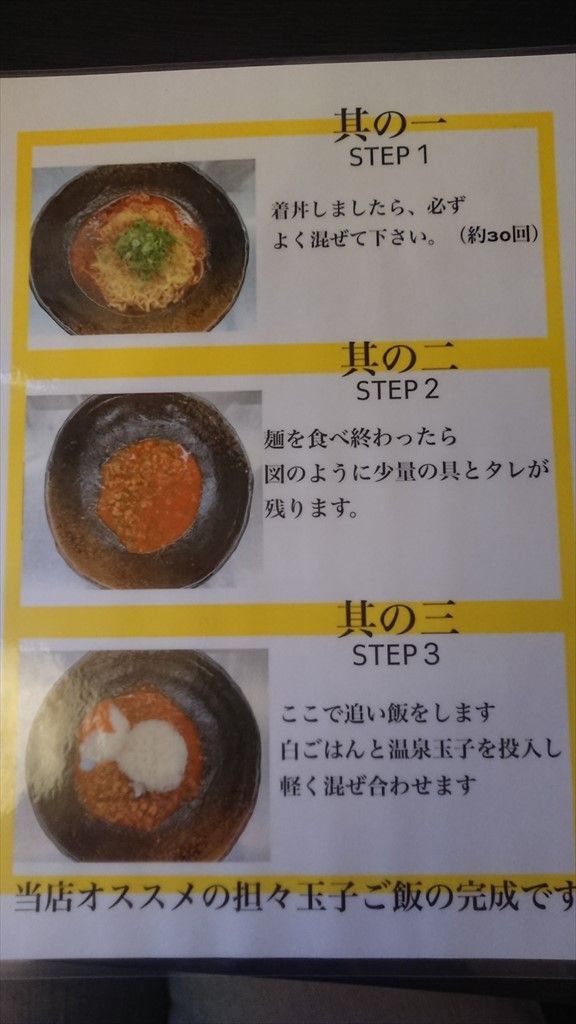 其の一
STEP 1
着丼しましたら、必ず
よく混ぜて下さい。（約30回）
其の二
STEP 2
麺を食べ終わったら
図のように少量の具とタレが
残ります。
其の三
STEP 3
ここで追い飯をします
白ごはんと温泉玉子を投入し
軽く混ぜ合わせます
当店オススメの担々玉子ご飯の完成です